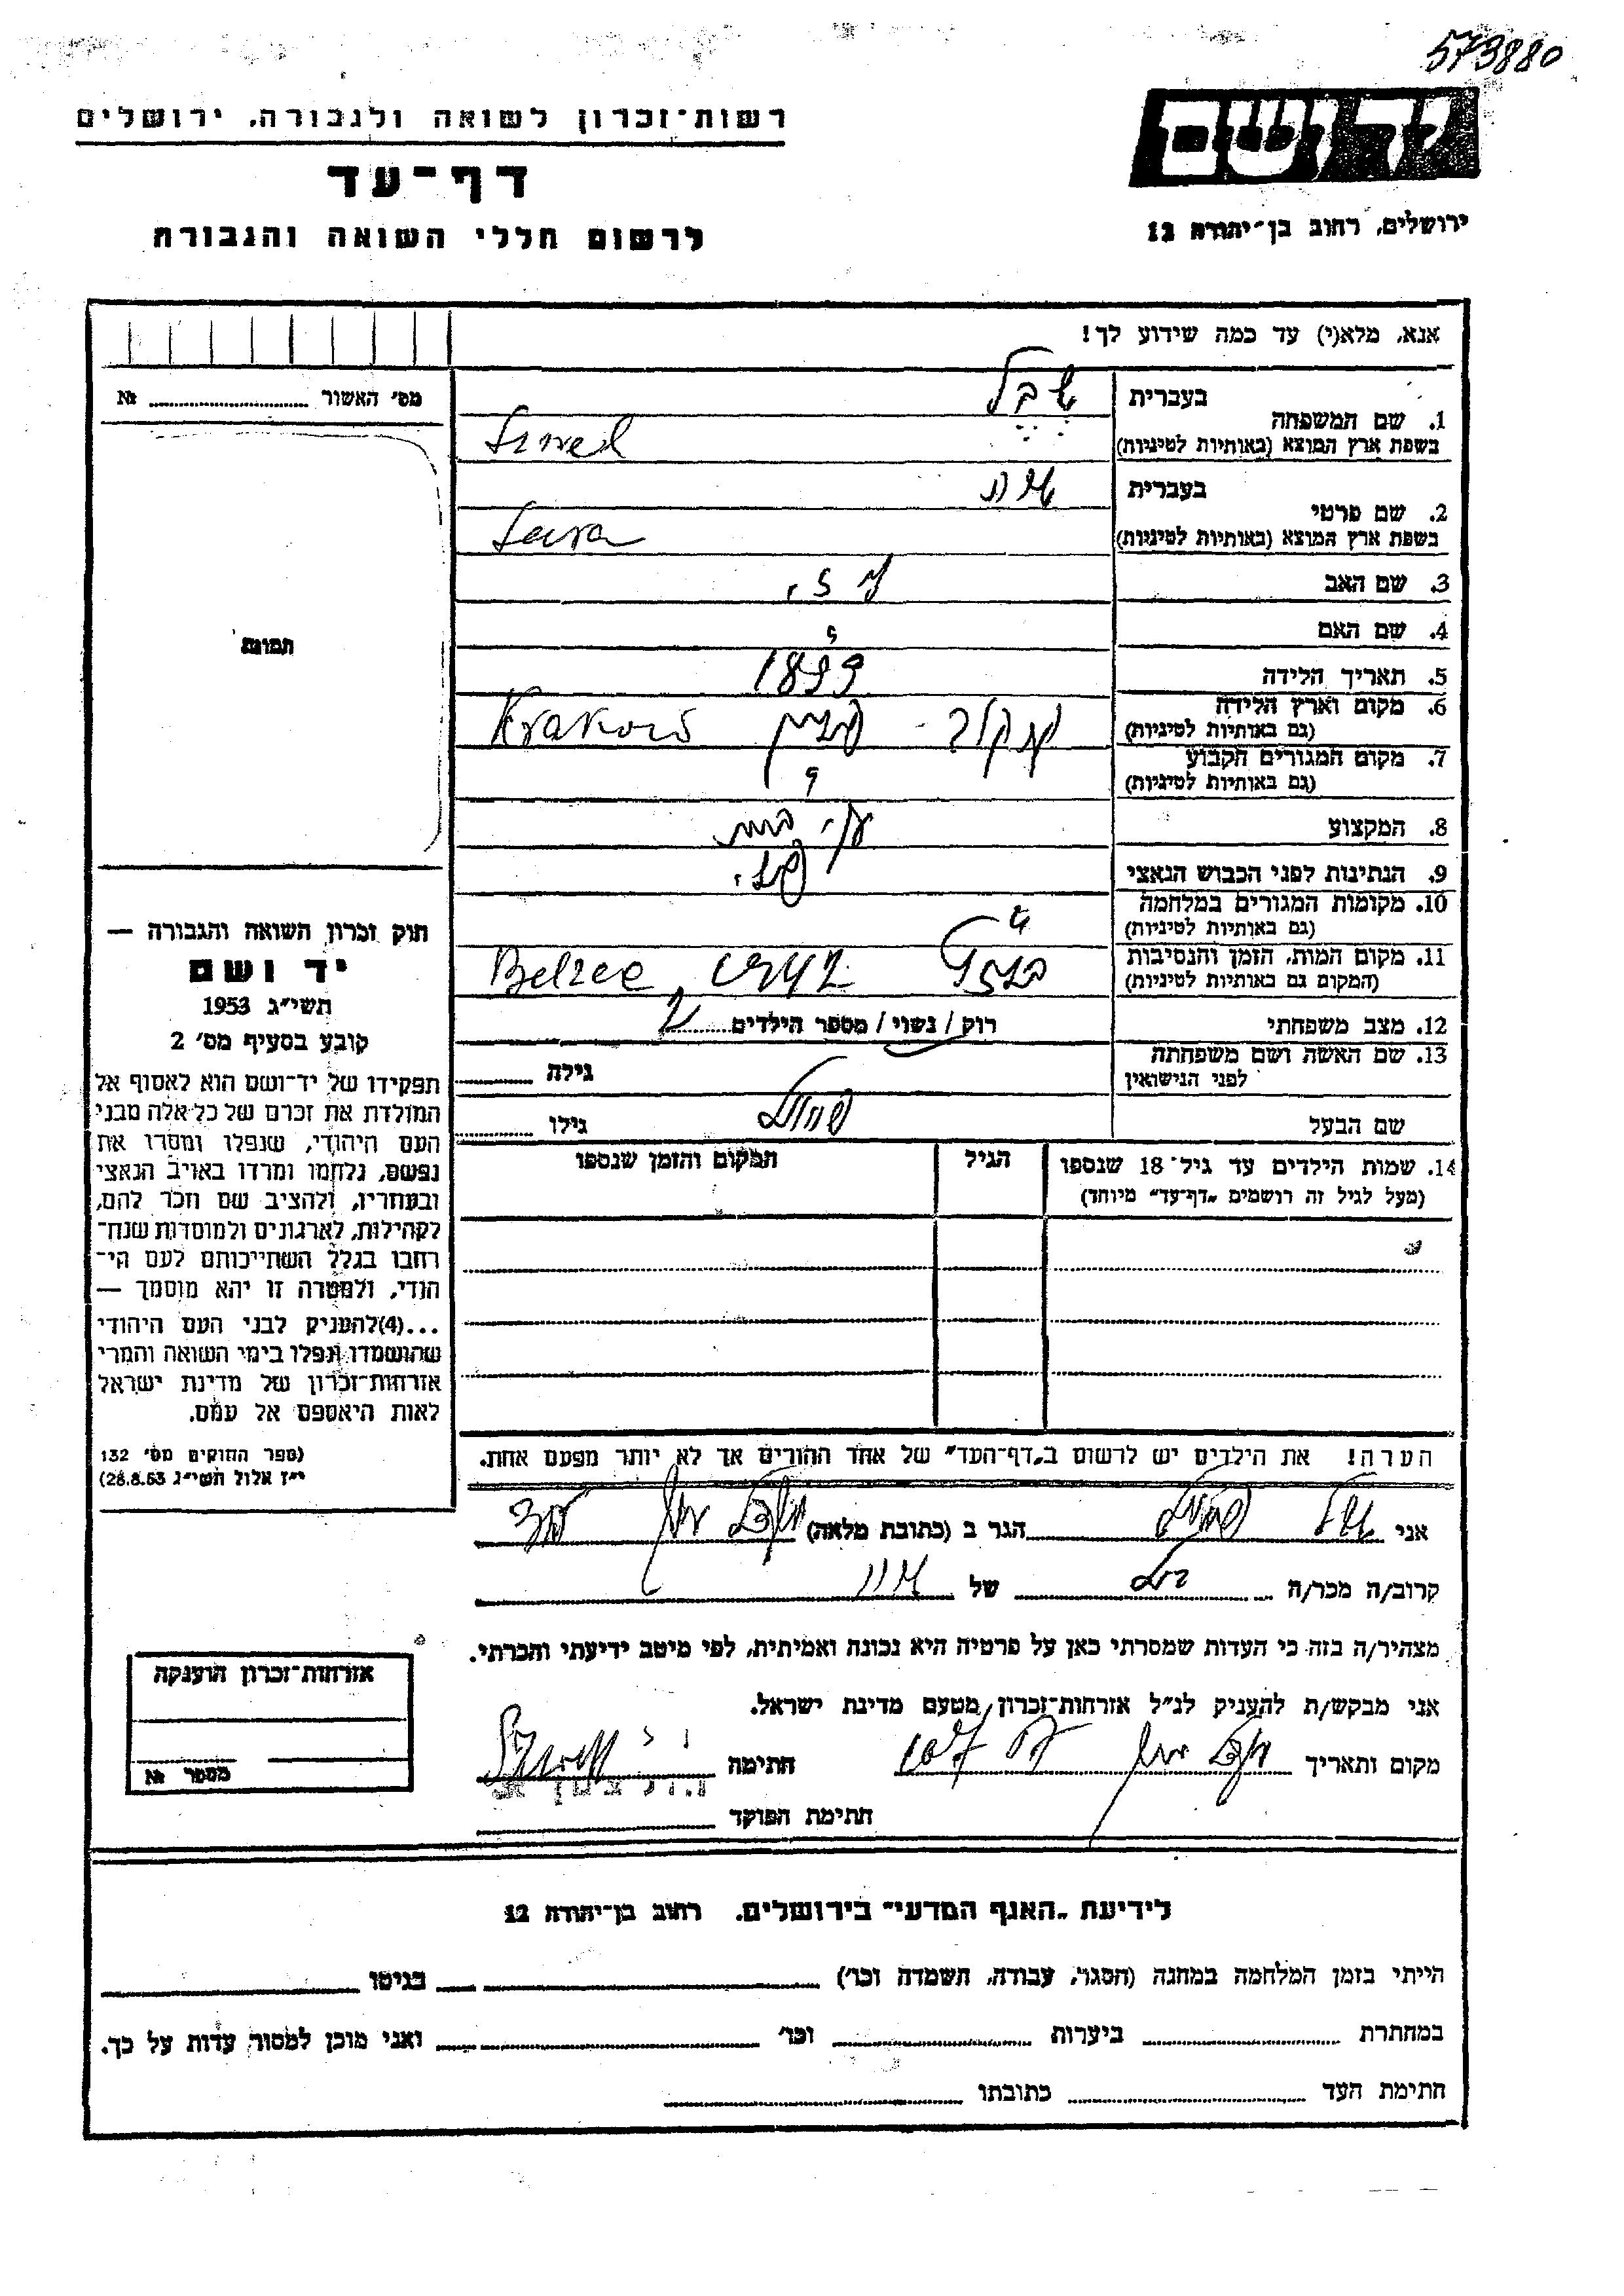 573880
יד ושם
רשות־זכרון לשואה ולגבורה, ירושלים
דף־עד
לרשום חללי השואה והגבורה
ירושלים, רחוב בן־יהודה 12
אנא, מלא(י) עד כמה שידוע לך!
מס׳ האשור № 
1. שם המשפחה
בעברית
בשפת ארץ המוצא (באותיות לטיניות)
2. שם פרטי
בעברית שרה
בשפת ארץ המוצא (באותיות לטיניות) Sara
3. שם האב
4. שם האם ?
5. תאריך הלידה 1899
6. מקום וארץ הלידה
(גם באותיות לטיניות) קרקוב - פולין Krakow
7. מקום המגורים הקבוע
(גם באותיות לטיניות) ?
8. המקצוע
9. הנתינות לפני הכבוש הנאצי
10. מקומות המגורים במלחמה
(גם באותיות לטיניות)
11. מקום המות, הזמן והנסיבות
(המקום גם באותיות לטיניות) 1942 Belzec
12. מצב משפחתי רוק / נשוי / מספר הילדים 2
13. שם האשה ושם משפחתה
לפני הנישואין גילה
שם הבעל שמואל גילו
14. שמות הילדים עד גיל־18 שנספו
(מעל לגיל זה רושמים "דף־עד" מיוחד)
הגיל
המקום והזמן שנספו
הערה! את הילדים יש לרשום ב"דף־העד" של אחד ההורים אך לא יותר מפעם אחת.
תמונה
חוק זכרון השואה והגבורה —
יד ושם
תשי״ג 1953
קובע בסעיף מס׳ 2
תפקידו של יד־ושם הוא לאסוף אל
המולדת את זכרם של כל אלה מבני
העם היהודי, שנפלו ומסרו את
נפשם, נלחמו ומרדו באויב הנאצי
ובעוזריו, ולהציב שם וזכר להם,
לקהילות, לארגונים ולמוסדות שנח־
רבו בגלל השתייכותם לעם הי־
הודי, ולמטרה זו יהא מוסמך —
...(4) להעניק לבני העם היהודי
שהושמדו ונפלו בימי השואה והמרי
אזרחות־זכרון של מדינת ישראל
לאות היאספם אל עמם.
(ספר החוקים מס׳ 132
י״ז אלול תשי״ג 28.8.53)
אני שמואל הגר ב (כתובת מלאה)
קרוב/ה מכר/ה של שרה
מצהיר/ה בזה כי העדות שמסרתי כאן על פרטיה היא נכונה ואמיתית, לפי מיטב ידיעתי והכרתי.
אני מבקש/ת להעניק לנ״ל אזרחות־זכרון מטעם מדינת ישראל.
מקום ותאריך חתימה
חתימת הפוקד
אזרחות־זכרון הוענקה
מספר №
לידיעת "האגף המדעי" בירושלים, רחוב בן־יהודה 12
הייתי בזמן המלחמה במחנה (הסגר, עבודה, השמדה וכו׳) בגיטו
במחתרת ביערות וכו׳ ואני מוכן למסור עדות על כך.
חתימת העד כתובתו